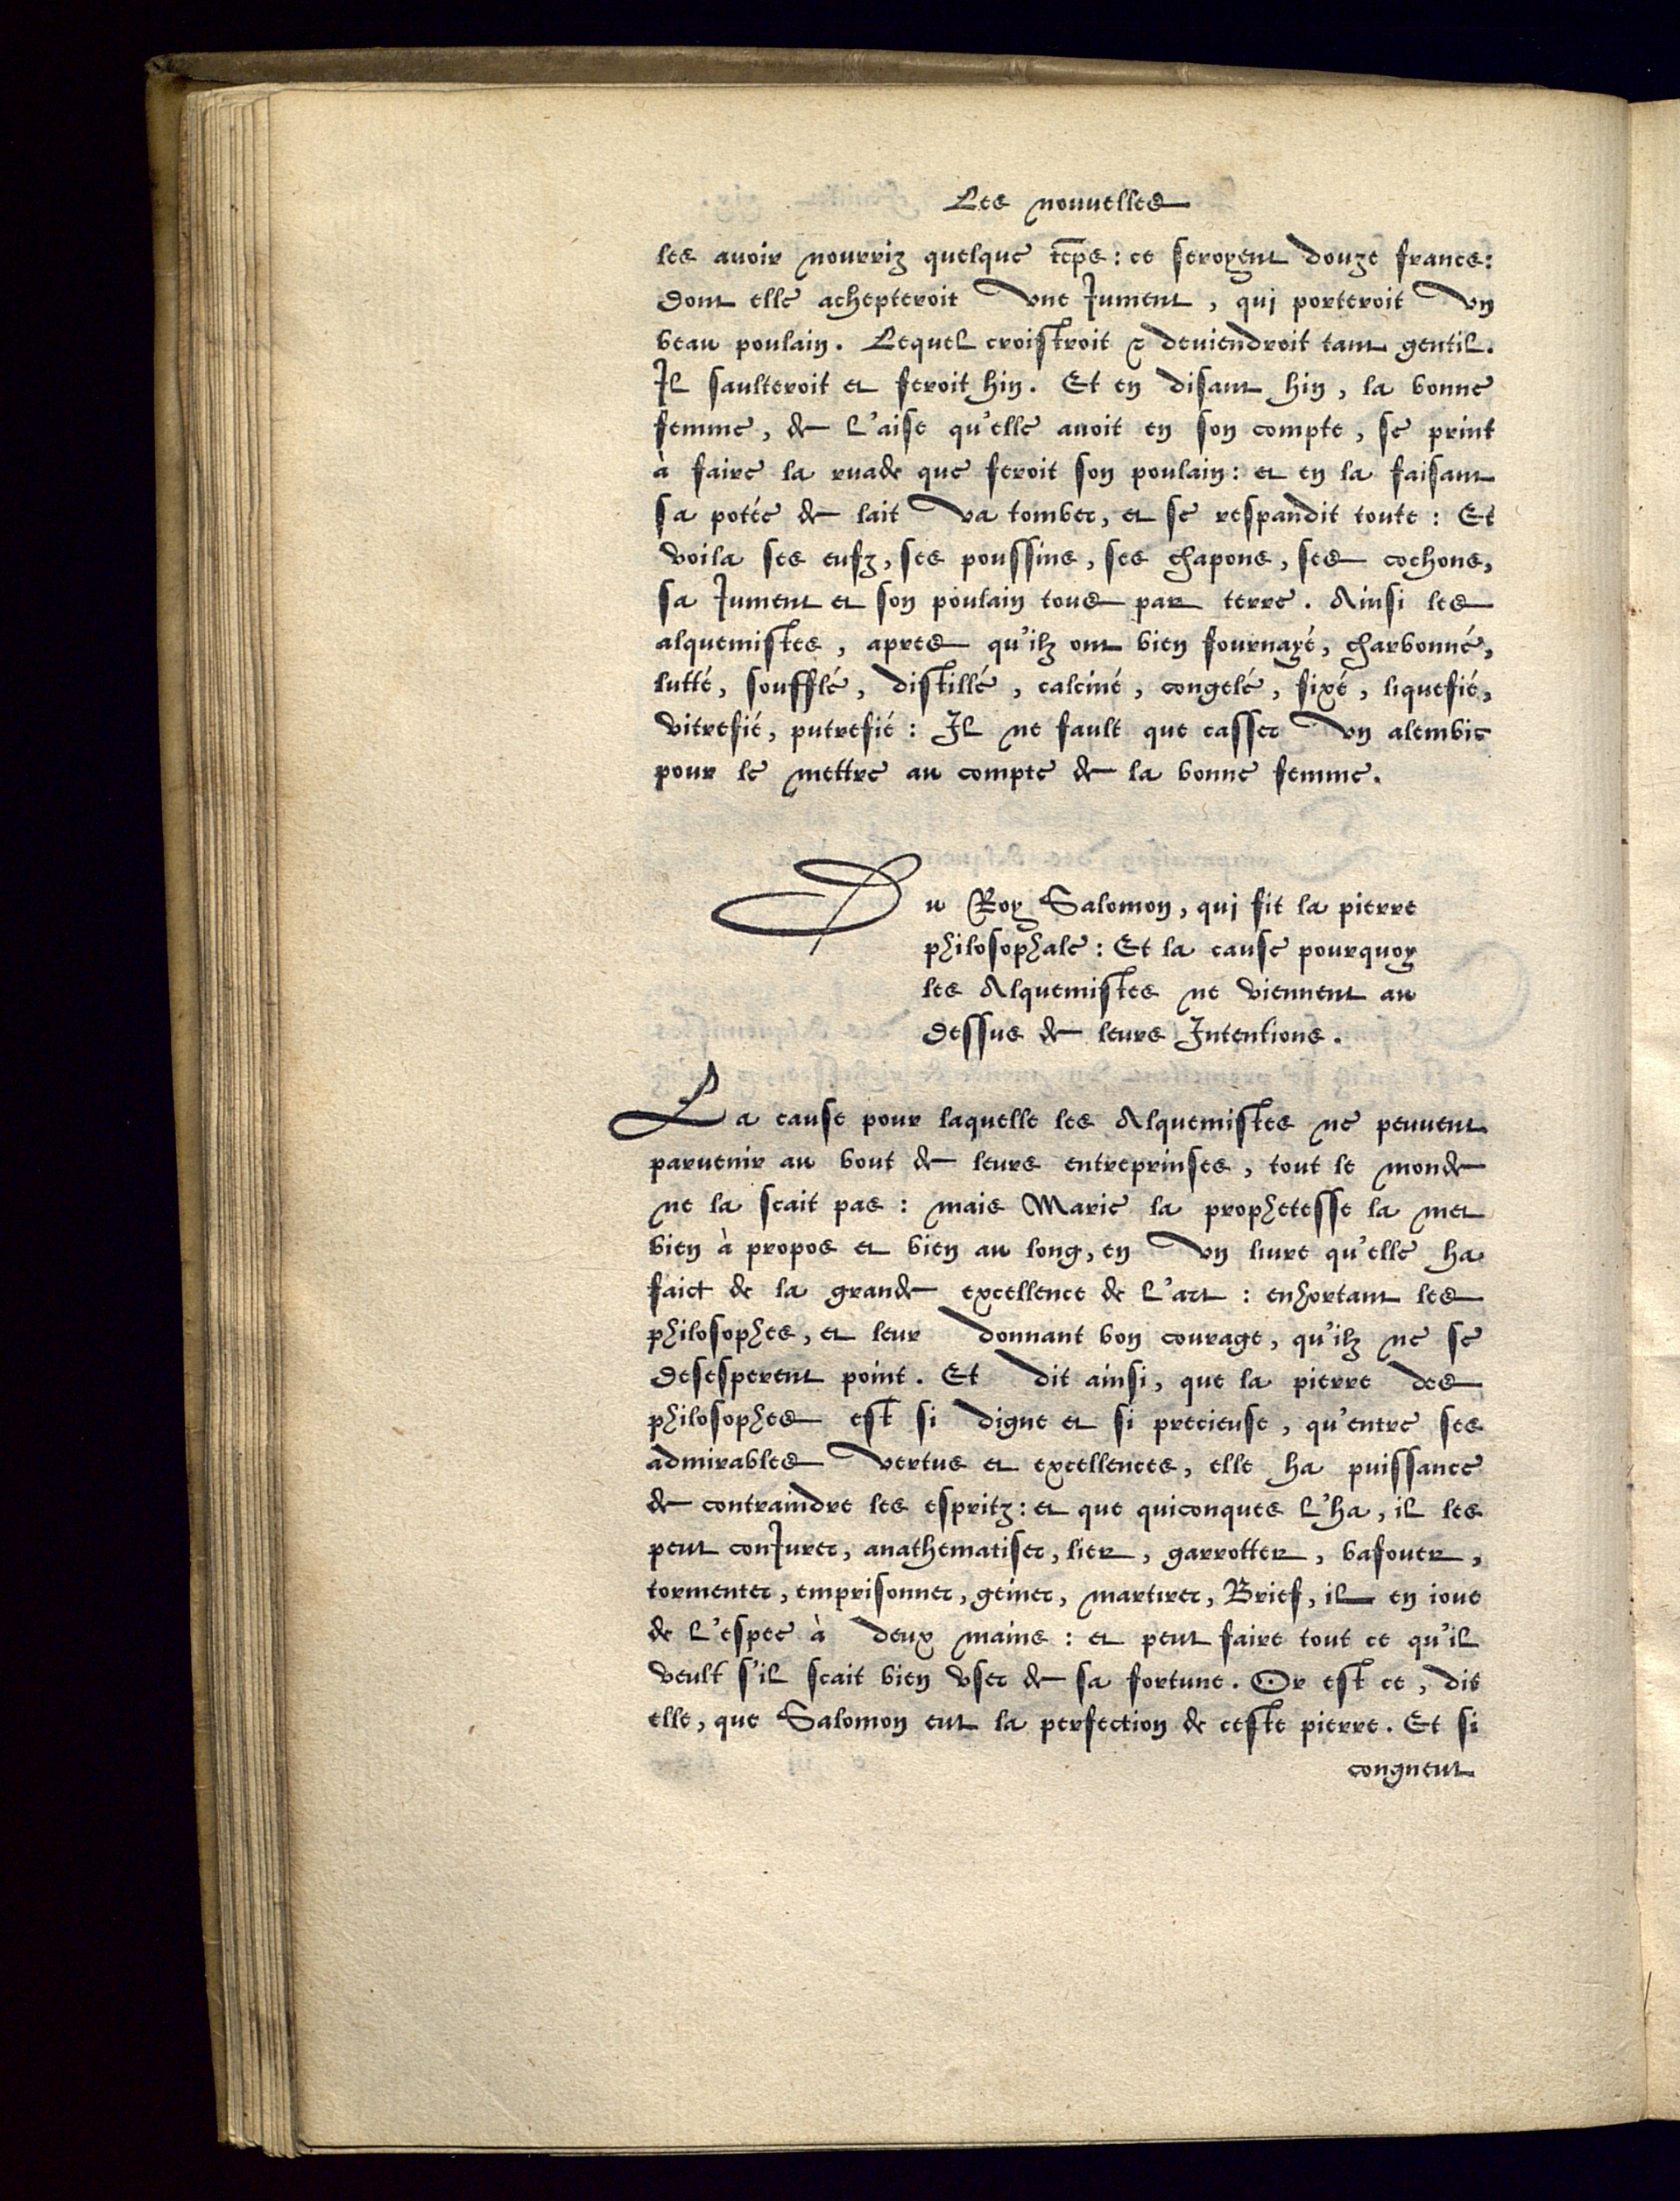 Les nouuelles
les auoir nourriz quelque tẽps : ce seroyent douze francs :
dont elle achepteroit vne Jument, qui porteroit vn
beau poulain. Lequel croistroit & deuiendroit tant gentil.
Il saulteroit et feroit hin. Et en disant hin, la bonne
femme, de l'aise qu'elle auoit en son compte, se print
à faire la ruade que feroit son poulain : et en la faisant
sa potée de lait va tomber, et se respandit toute : Et
voila ses eufz, ses poussins, ses chapons, ses cochons,
sa Jument et son poulain tous par terre. Ainsi les
alquemistes, apres qu'ilz ont bien fournayé, charbonné,
lutté, soufflé, distillé, calciné, congelé, fixé, liquefié,
vitrefié, putrefié : Il ne fault que casser vn alembic
pour le mettre au compte de la bonne femme.
Du Roy Salomon, qui fit la pierre
philosophale : Et la cause pourquoy
les Alquemistes ne viennent au
dessus de leurs Intentions.
La cause pour laquelle les Alquemistes ne peuuent
paruenir au bout de leurs entreprinses, tout le monde
ne la scait pas : mais Marie la prophetesse la met
bien à propos et bien au long, en vn liure qu'elle ha
faict de la grande excellence de l'art : enhortant les
philosophes, et leur donnant bon courage, qu'ilz ne se
desesperent point. Et dit ainsi, que la pierre des
philosophes est si digne et si precieuse, qu'entre ses
admirables vertus et excellences, elle ha puissance
de contraindre les espritz : et que quiconques l'ha, il les
peut conJurer, anathematiser, lier, garrotter, bafouer,
tormenter, emprisonner, geiner, martirer, Brief, il en ioue
de l'espee à deux mains : et peut faire tout ce qu'il
veult s'il scait bien vser de sa fortune. Or est ce, dit
elle, que Salomon eut la perfection de ceste pierre. Et si
congneut